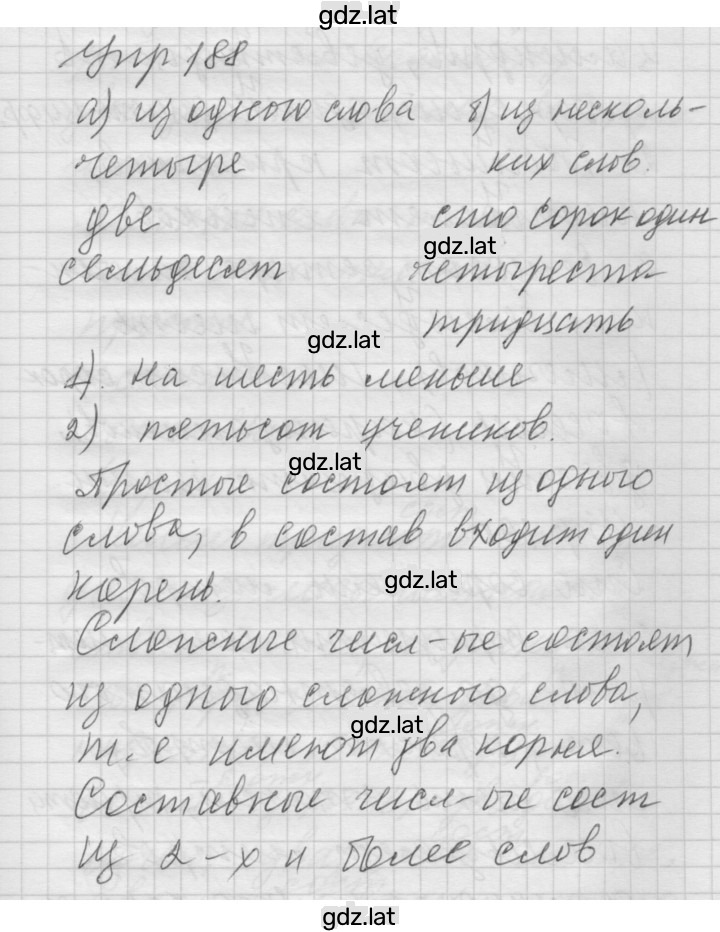 gdz.lat
Упр 188
а) из одного слова б) из несколь-
четыре ких слов.
две сто сорок один
gdz.lat
семьдесят четыреста
тридцать
gdz.lat
1). на шесть меньше
2) пятьсот учеников.
gdz.lat
Простые состоят из одного
слова, в состав входит один
gdz.lat
корень.
Сложные числ-ые состоят
из одного сложного слова,
gdz.lat
т.е имеют два корня.
Составные числ-ые сост
из 2-х и более слов
gdz.lat